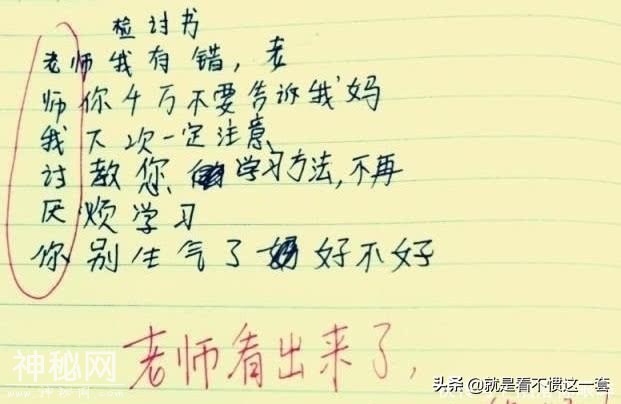 检讨书
老师我有错，老
师你千万不要告诉我妈
我下次一定注意、
讨教您、学习方法，不再
厌烦学习
你别生气了好不好
老师看出来了，
神秘网
头条 @就是看不惯这一套